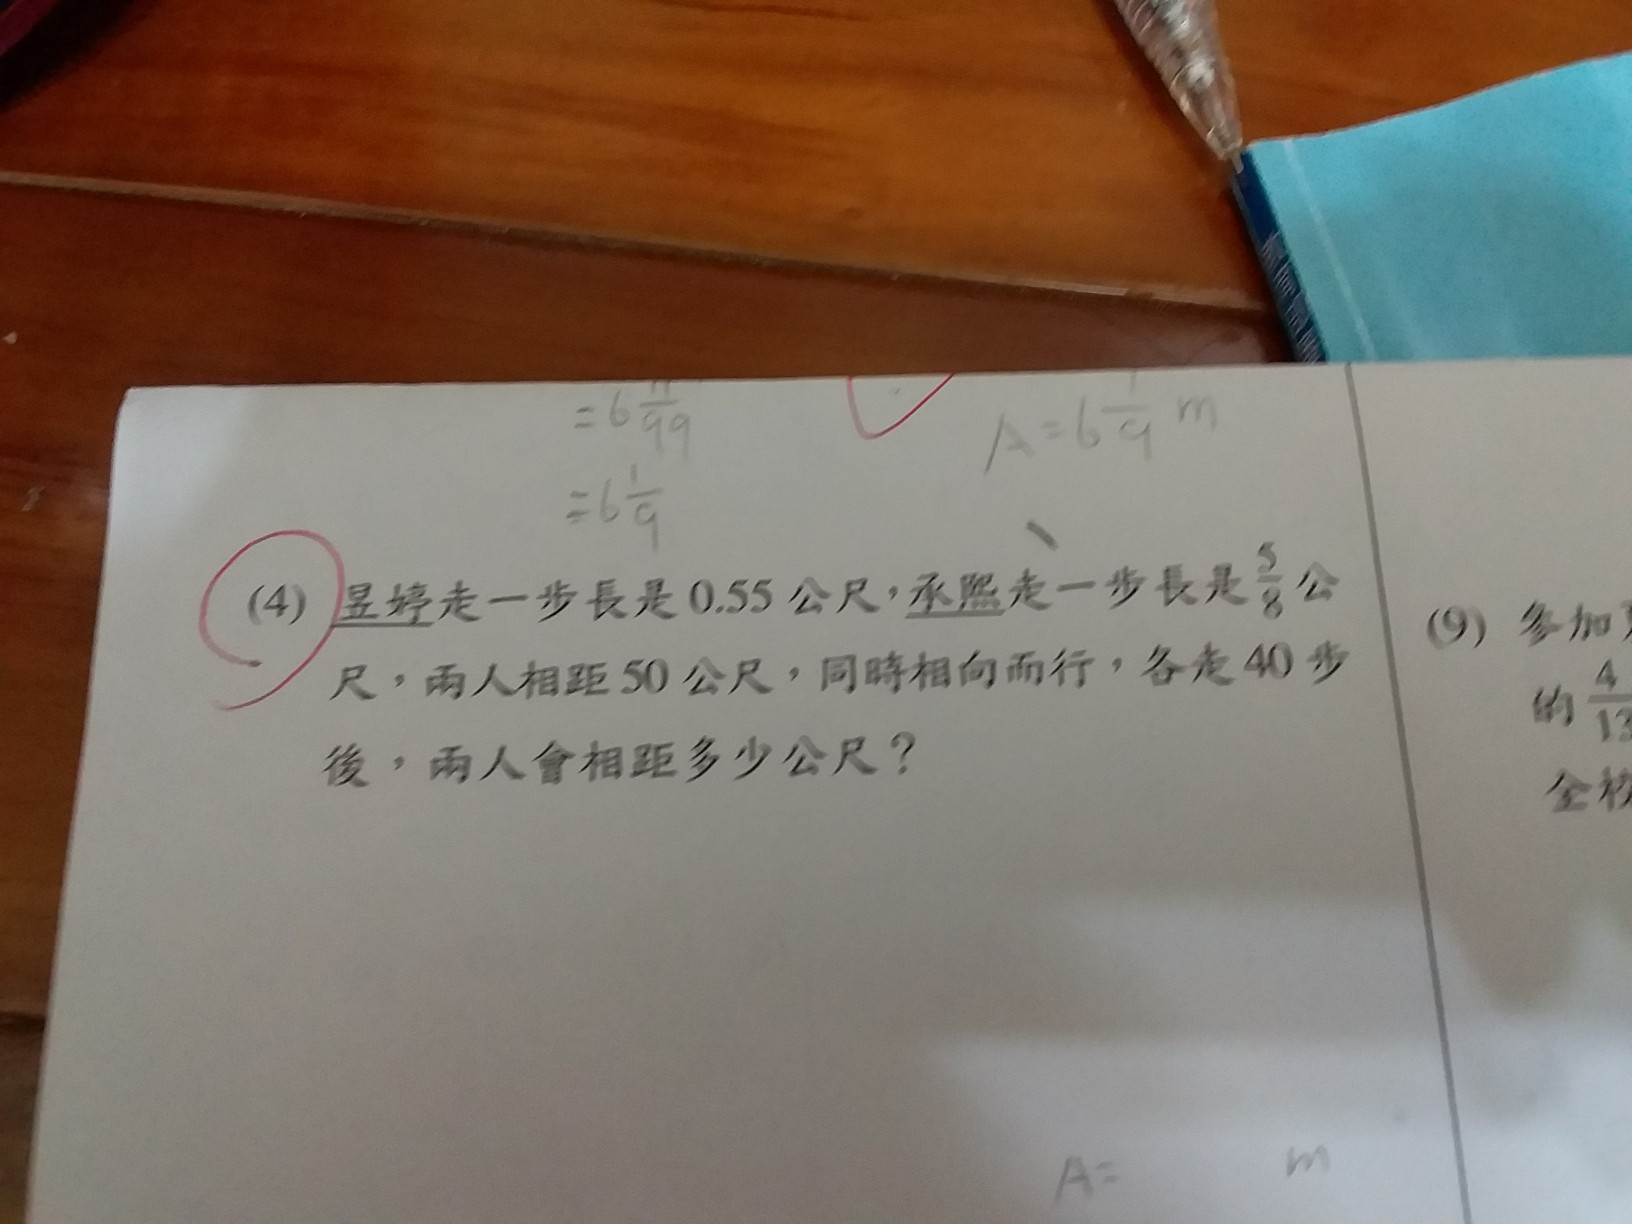 =6 11/99
A=6 1/9 m
=6 1/9
(4) 昱婷走一步長是0.55公尺，承熙走一步長是5/8公
尺，兩人相距50公尺，同時相向而行，各走40步
後，兩人會相距多少公尺？
A= m
(9) 參加
的 4/13
全校